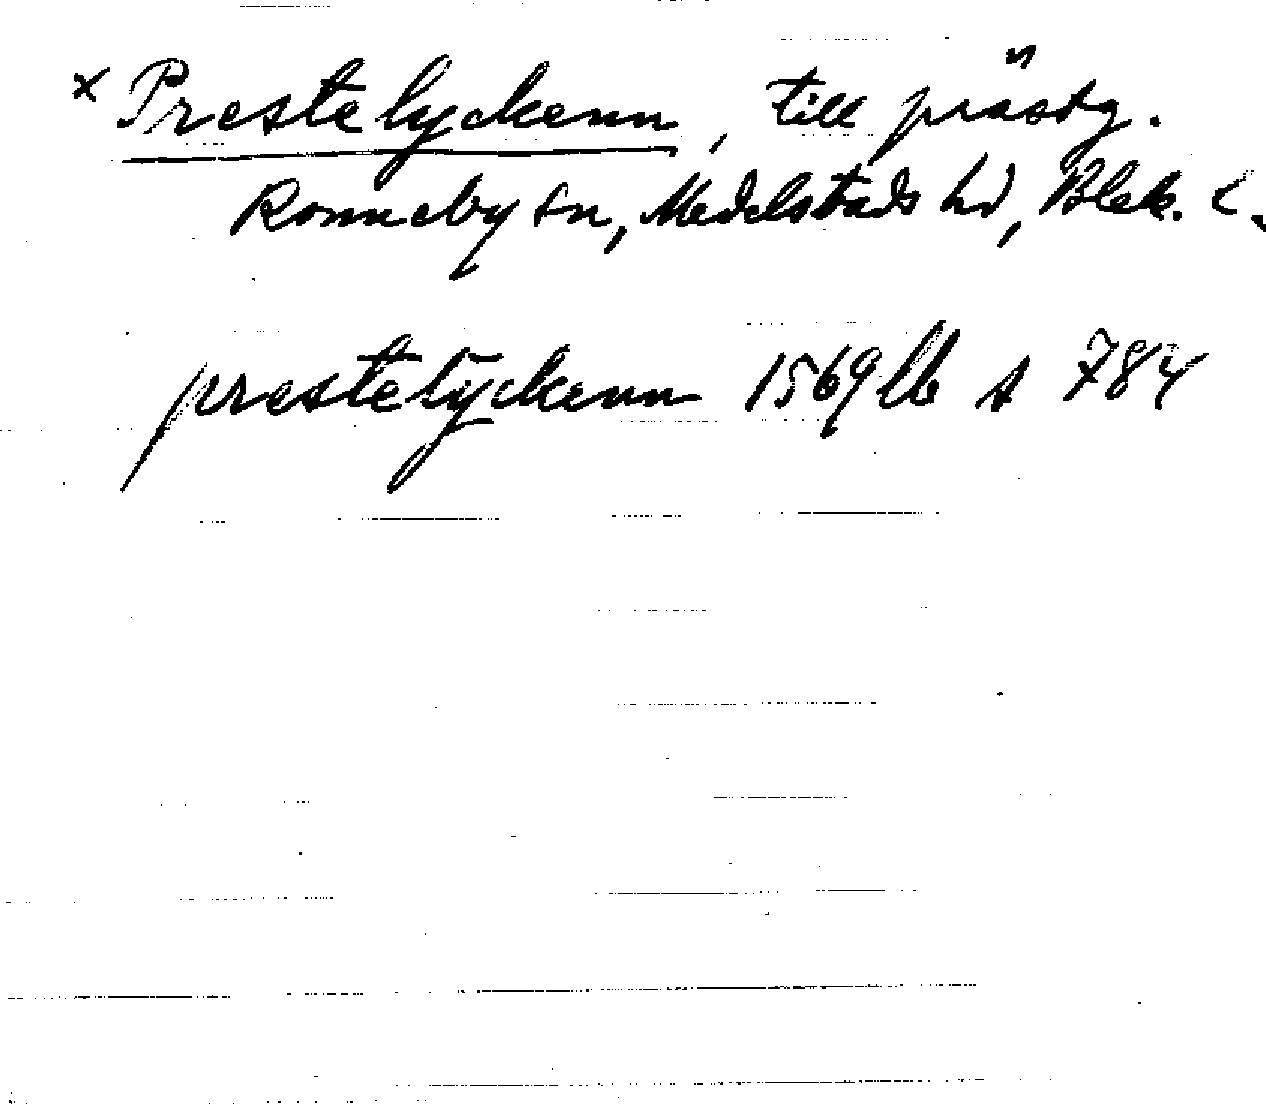 x Prestelyckenn, till prästg.
Ronneby sn, Medelstads hd, Blek. l.
prestelyckenn 1569 lb s 784